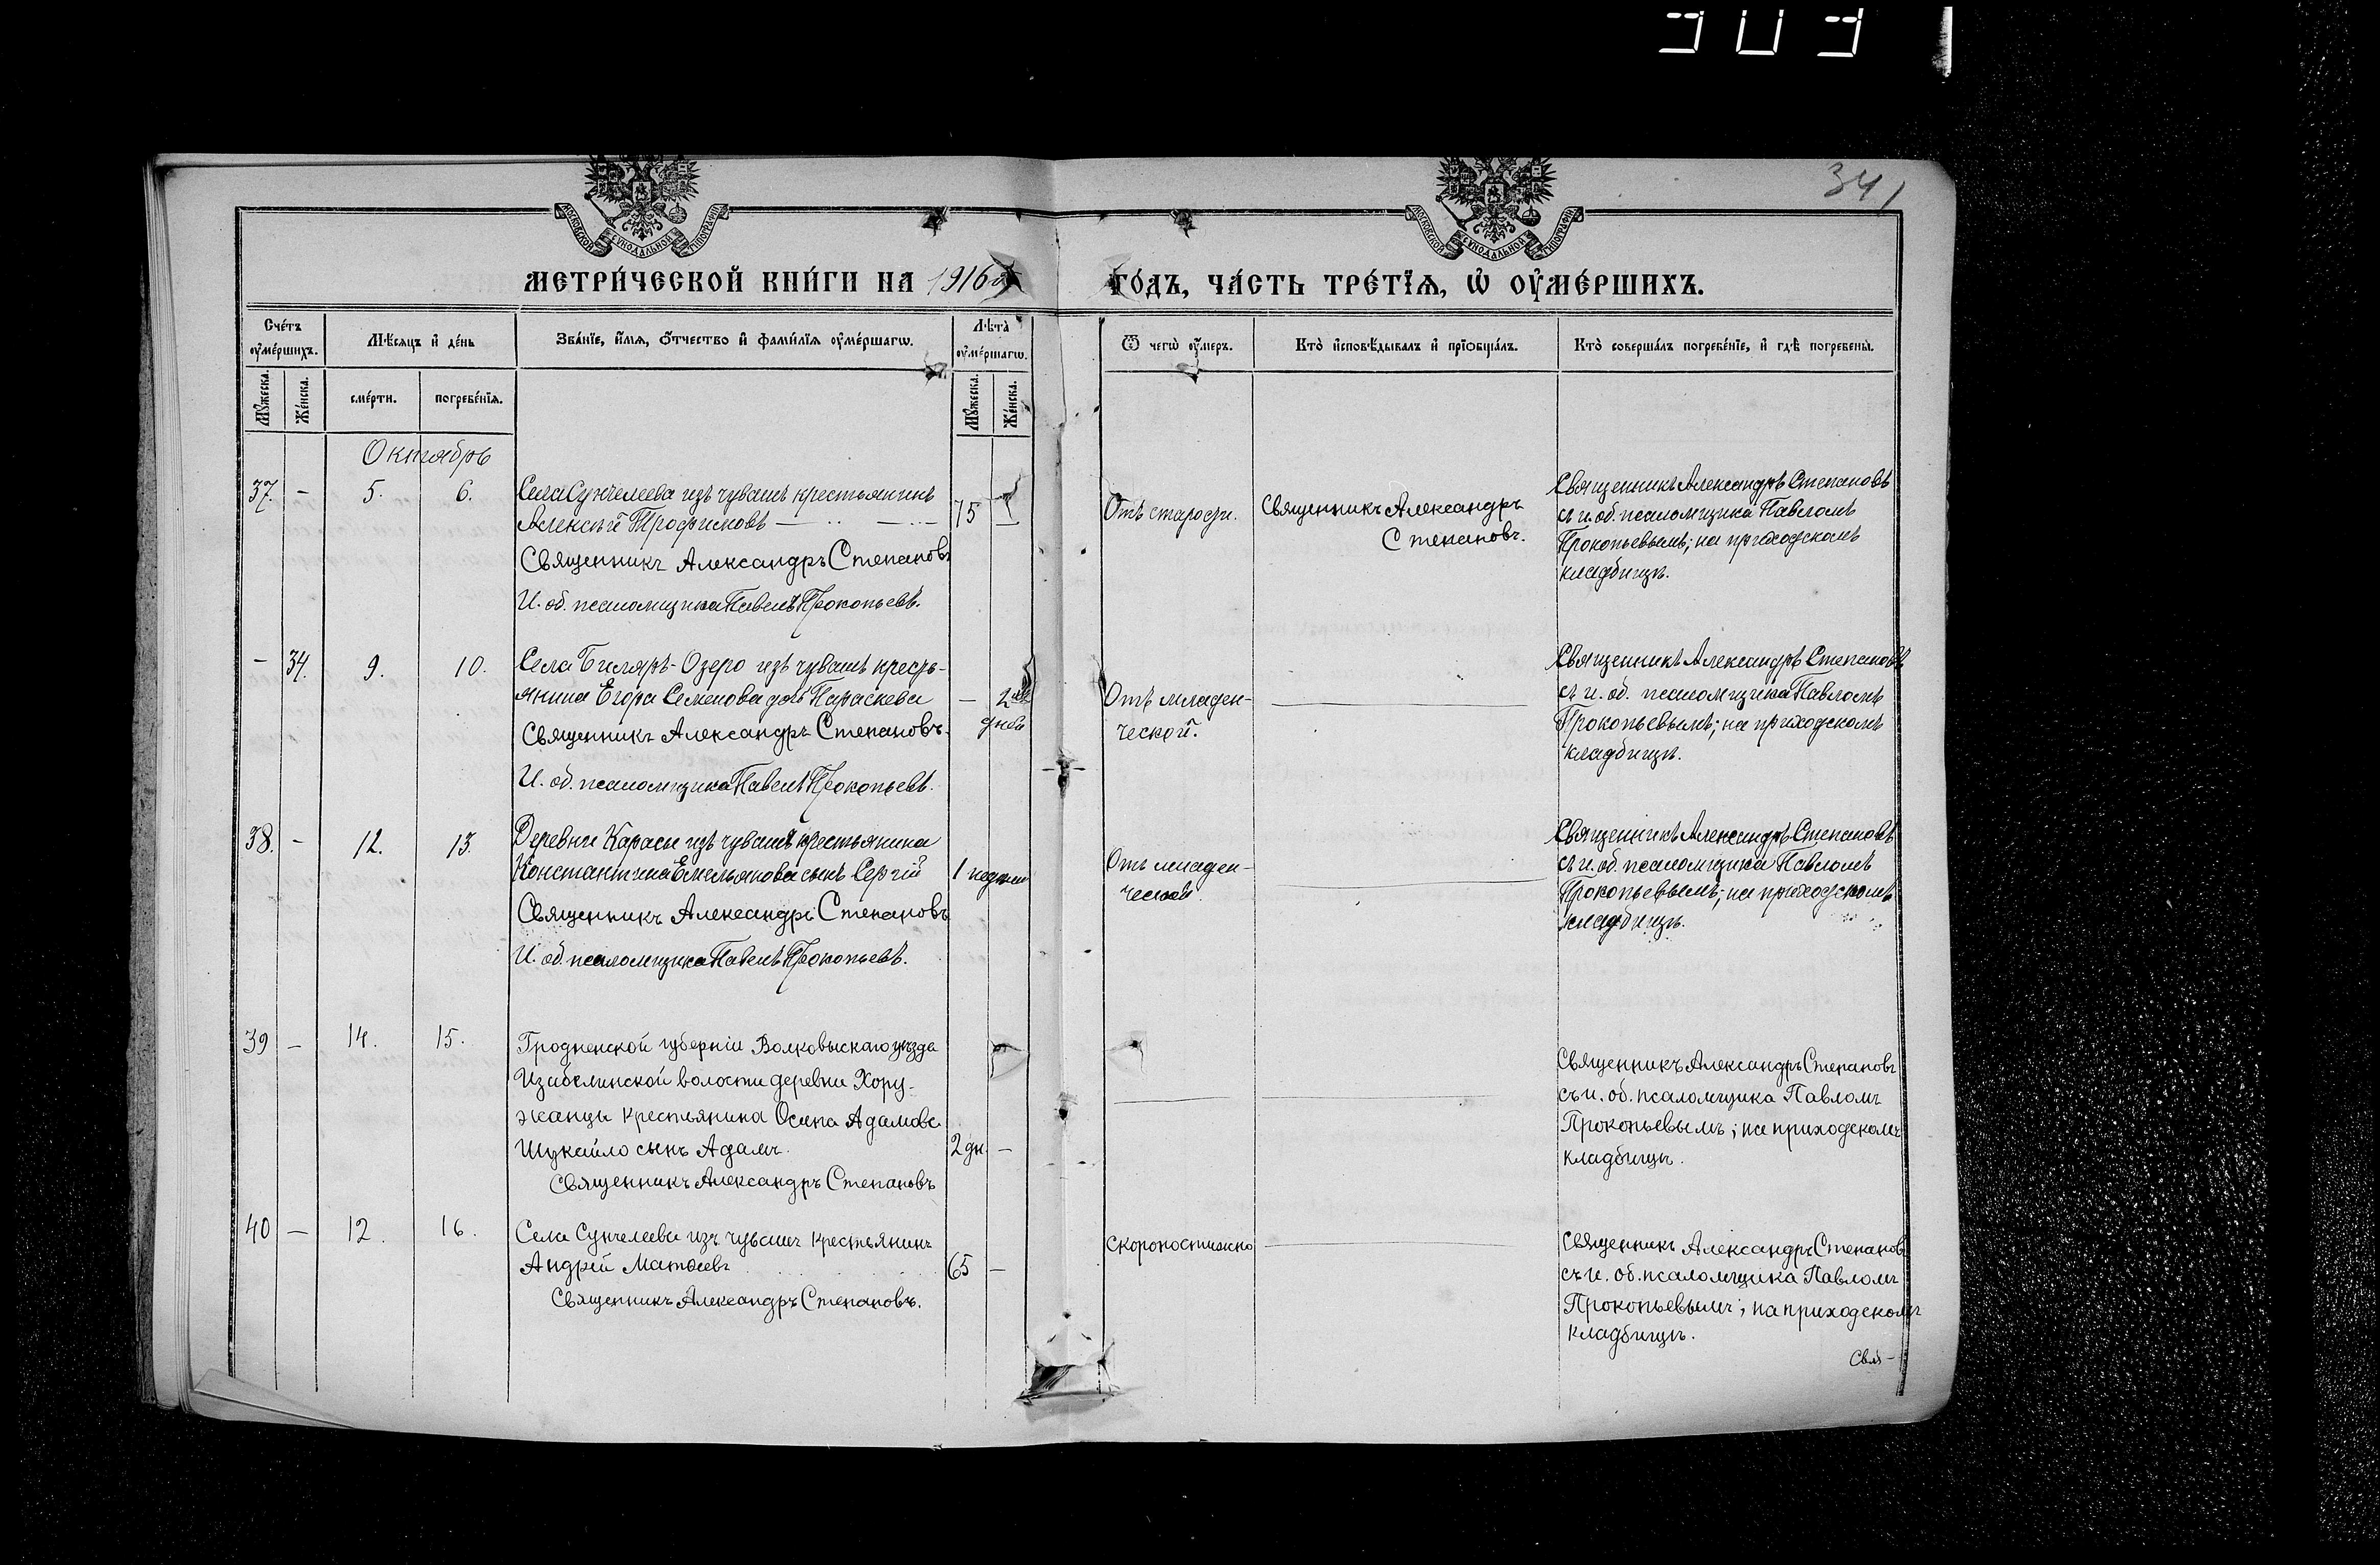 341
МЕТРИ́ЧЕСКОЙ КНИ́ГИ НА 1916
ГО́ДЪ, ЧА́СТЬ ТРЕ́ТЇѦ, Ѡ ОУМЕ́РШИХЪ.
Сче́тъ оуме́ршихъ.
Мѣ́сяцъ и де́нь
Зва́нїе, и́мѧ, ѻ́тчество и фами́лїѧ оуме́ршагѡ.
Лѣта̀ оуме́ршагѡ.
Ѿ чегѡ̀ оу́меръ.
Кто̀ исповѣ́дывалъ и прїѡбща́лъ.
Кто̀ соверша́лъ погребе́нїе, и гдѣ̀ погребены̀.
Му́жеска.
Же́нска.
сме́рти.
погребе́нїѧ.
Му́жеска.
Же́нска.
Октябрь
37. - 5. 6. Села Сунчелеева изъ чувашъ крестьянинъ
Алексѣй Трофимовъ 75 —
Священникъ Александръ Степановъ
И. об. псаломщика Павелъ Прокопьевъ.
Отъ старости. Священникъ Александръ
Степановъ.
Священникъ Александръ Степановъ
съ и. об. псаломщика Павломъ
Прокопьевымъ; на приходскомъ
кладбищѣ.
- 34. 9. 10. Села Биляръ-Озеро изъ чувашъ кресть-
янина Егора Семенова дочь Параскева — 2
Священникъ Александръ Степановъ. дней
И. об. псаломщика Павелъ Прокопьевъ.
Отъ младен-
ческой.
Священникъ Александръ Степановъ
съ и. об. псаломщика Павломъ
Прокопьевымъ; на приходскомъ
кладбищѣ.
38. - 12. 13. Деревни Карасы изъ чувашъ крестьянина
Константина Емельянова сынъ Сергій 1 недѣли
Священникъ Александръ Степановъ
И. об. псаломщика Павелъ Прокопьевъ.
Отъ младен-
ческой.
Священникъ Александръ Степановъ
съ и. об. псаломщика Павломъ
Прокопьевымъ; на приходскомъ
кладбищѣ.
39 — 14. 15. Гродненской губерніи Волковыскаго уѣзда
Изабелинской волости деревни Хору-
жанцы крестьянина Осипа Адамова
Шукайло сынъ Адамъ. 2 дн. —
Священникъ Александръ Степановъ
Священникъ Александръ Степановъ
съ и. об. псаломщика Павломъ
Прокопьевымъ; на приходскомъ
кладбищѣ.
40 — 12. 16. Села Сунчелеева изъ чувашъ крестьянинъ
Андрей Матѳеевъ 65 —
Священникъ Александръ Степановъ.
скоропостижно
Священникъ Александръ Степановъ
съ и. об. псаломщика Павломъ
Прокопьевымъ; на приходскомъ
кладбищѣ.
Свя-